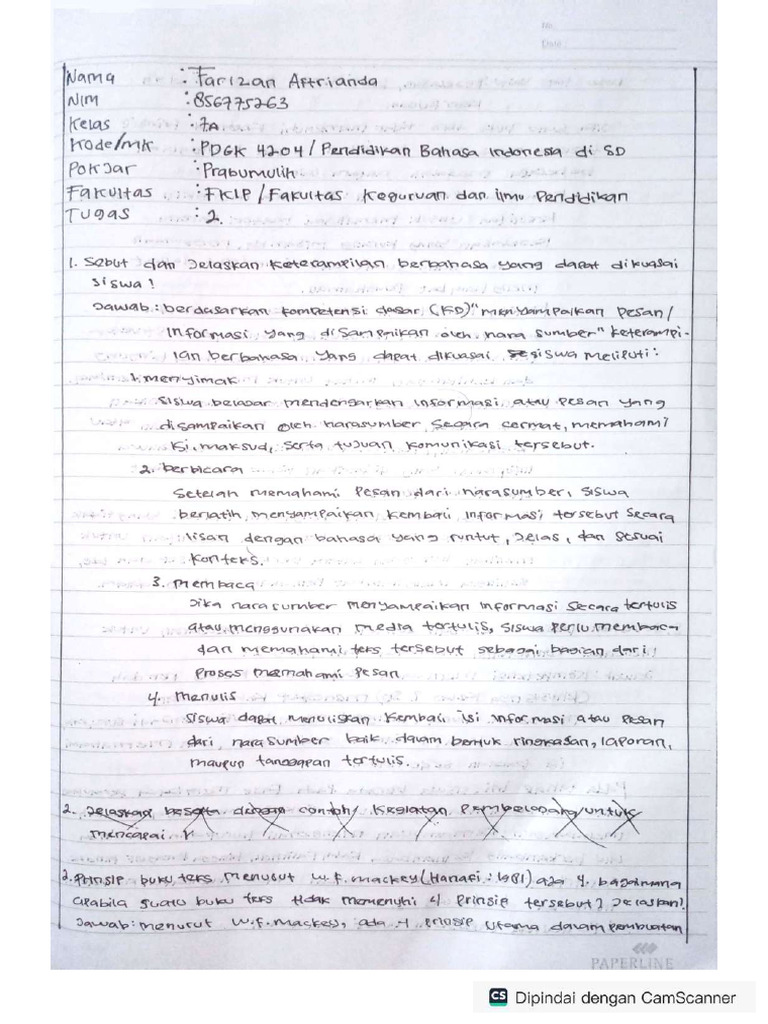 No:
Date:
Nama : Farizan Aftrianda
Nim : 856775263
Kelas : 7A
Kode/MK : PDGK 4204 / Pendidikan Bahasa Indonesia di SD
Pokjar : Prabumulih
Fakultas : FKIP / Fakultas Keguruan dan ilmu Pendidikan
Tugas : 2.
1. Sebut dan Jelaskan keterampilan berbahasa yang dapat dikuasai
siswa !
Jawab : berdasarkan kompetensi dasar (KD) "menyampaikan pesan /
Informasi yang disampaikan oleh nara sumber" keterampi-
lan berbahasa yang dapat dikuasai siswa meliputi :
1. menyimak
siswa belajar mendengarkan informasi atau pesan yang
disampaikan oleh narasumber secara cermat, memahami
isi, maksud, serta tujuan komunikasi tersebut.
2. berbicara
Setelah memahami pesan dari narasumber, siswa
berlatih menyampaikan kembali informasi tersebut secara
lisan dengan bahasa yang runtut, jelas, dan sesuai
konteks.
3. membaca
Jika narasumber menyampaikan informasi secara tertulis
atau menggunakan media tertulis, siswa perlu membaca
dan memahami teks tersebut sebagai bagian dari
proses memahami pesan
4. menulis
siswa dapat menuliskan kembali isi informasi atau pesan
dari nara sumber baik dalam bentuk ringkasan, laporan,
maupun tanggapan tertulis.
2. Jelaskan beserta dengan contoh kegiatan pembelajaran untuk
mencapai
2. Prinsip buku teks menurut W.F. mackey (Hanafi : 1981) ada 4. bagaimana
apabila suatu buku teks tidak memenuhi 4 prinsip tersebut? Jelaskan!
Jawab : menurut W.F. mackey, ada 4 prinsip utama dalam pembuatan
PAPERLINE
CS Dipindai dengan CamScanner